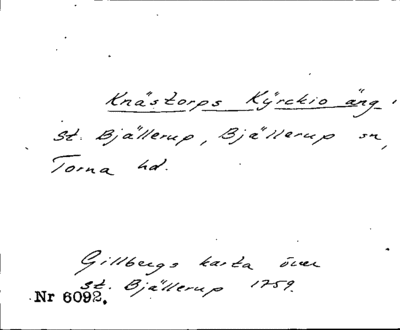 Knästorps Kÿrckio äng,
St. Bjällerup, Bjällerup sn,
Torna hd.
Gillbergs karta över
St. Bjällerup 1759.
Nr 6092.